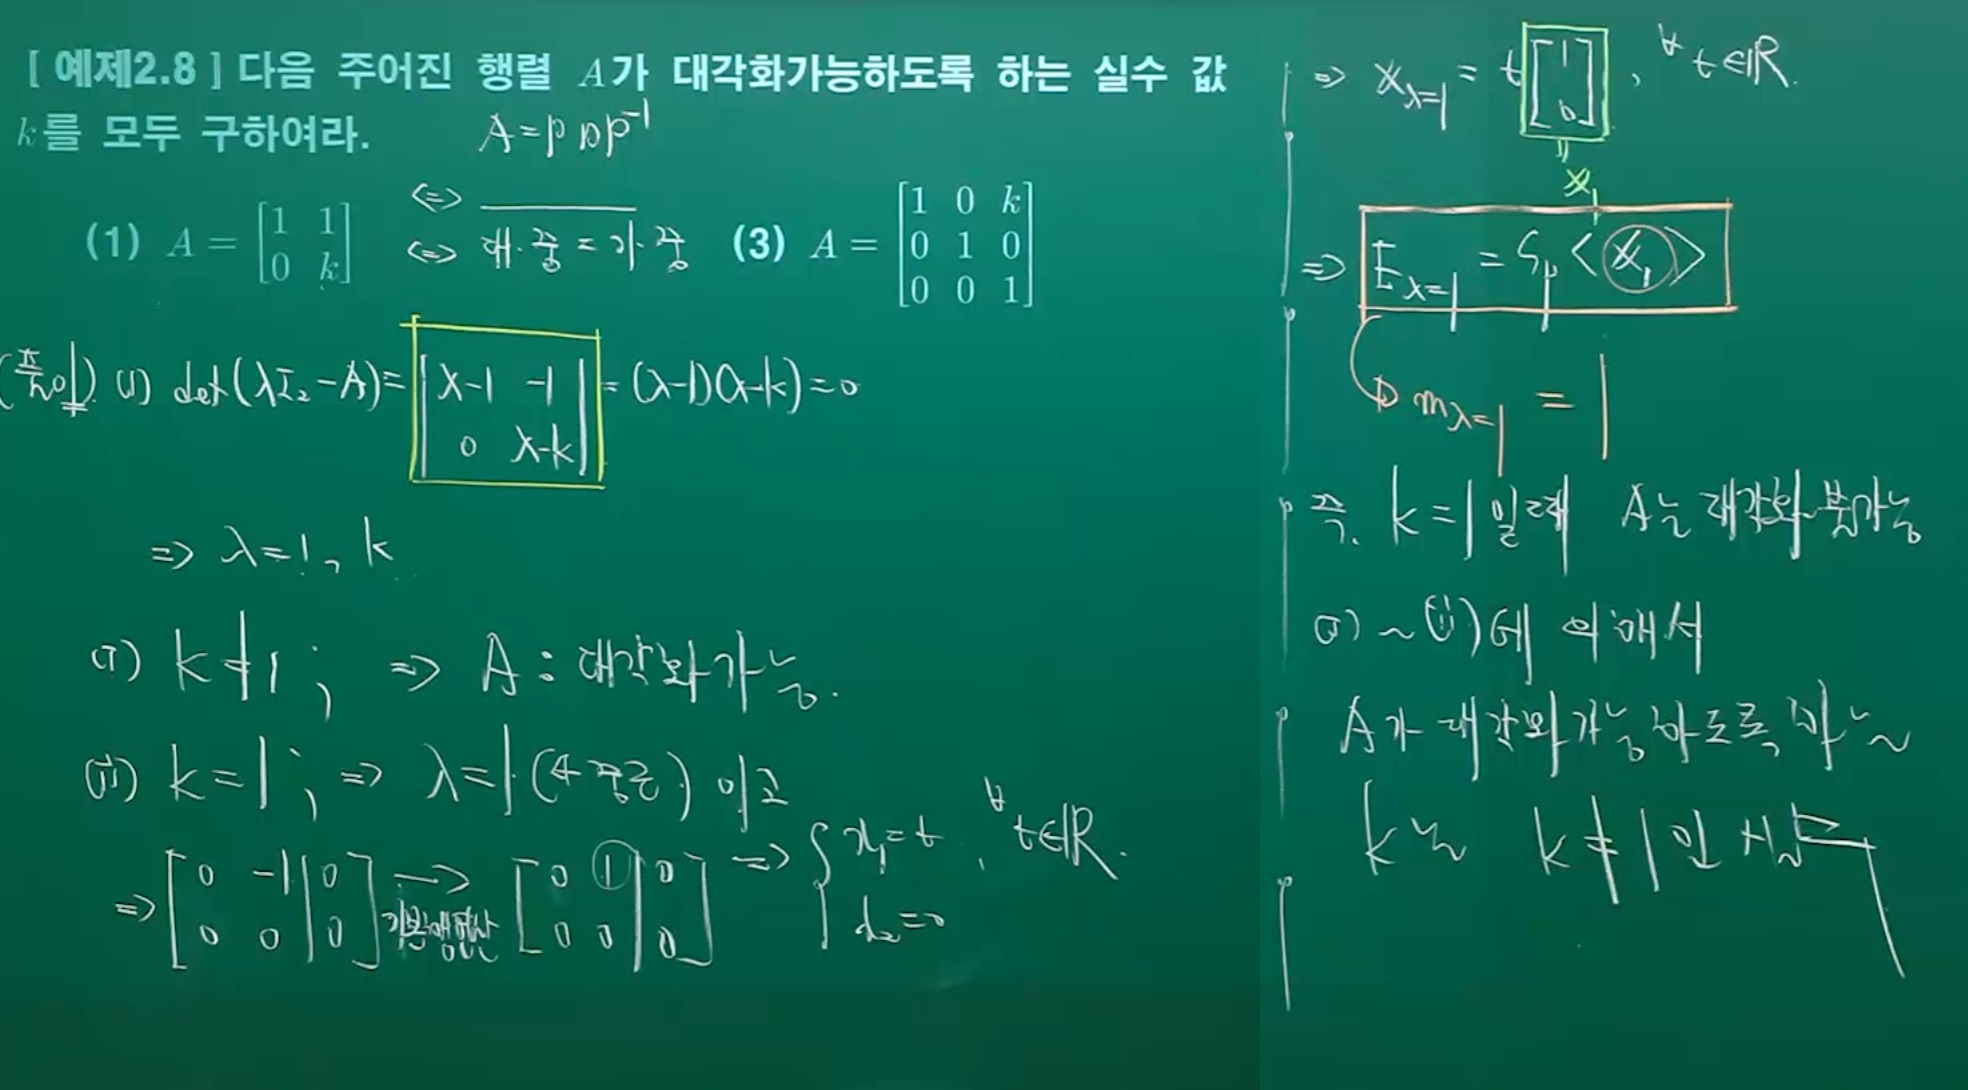 [ 예제2.8 ] 다음 주어진 행렬 A가 대각화가능하도록 하는 실수 값
k를 모두 구하여라.
A = P D P⁻¹
(1) A = [1 1; 0 k]
⇔
⇔ 대·중 = 기·중
(3) A = [1 0 k; 0 1 0; 0 0 1]
(풀이) (1) det(λI₂-A) = |λ-1 -1; 0 λ-k| = (λ-1)(λ-k) = 0
⇒ λ=1, k
(i) k≠1 ; ⇒ A : 대각화가능.
(ii) k=1 ; ⇒ λ=1 (중근) 이고
⇒ [0 -1 | 0; 0 0 | 0] → 기본행연산 [0 1 | 0; 0 0 | 0] ⇒ { x₁=t, x₂=0 , ∀t∈ℝ.
⇒ x_λ=1 = t [1; 0] , ∀t∈ℝ.
x₁
⇒ E_λ=1 = Sp<x₁>
m_λ=1 = 1
즉. k=1일때 A는 대각화 불가능
(i)~(ii)에 의해서
A가 대각화가능하도록 하는
k는 k≠1인 실수